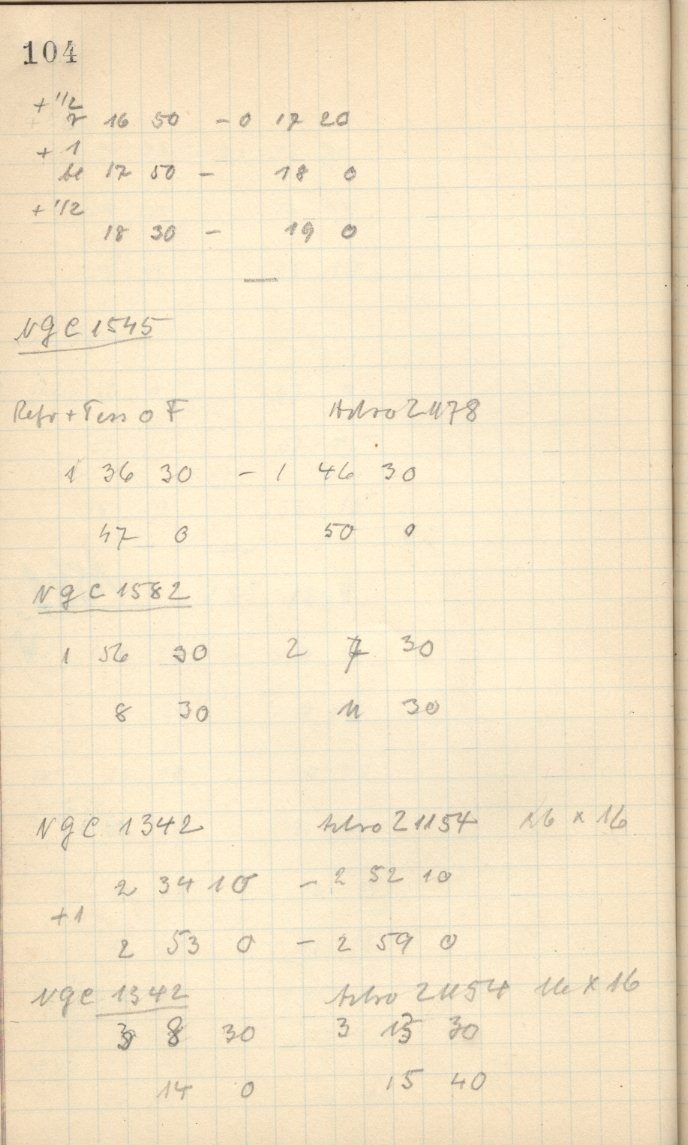 104
+ 1/2
16 50 - 0 17 20
+ 1
17 50 - 18 0
+ 1/2
18 30 - 19 0
NGC 1545
Refr + Tess o F Astro 21178
1 36 30 - 1 46 30
47 0 50 0
NGC 1582
1 56 30 2 7 30
8 30 11 30
NGC 1342 Astro 21154 16 x 16
2 34 10 - 2 52 10
+1
2 53 0 - 2 59 0
NGC 1342 Astro 21154 16 x 16
3 8 30 3 13 30
14 0 15 40